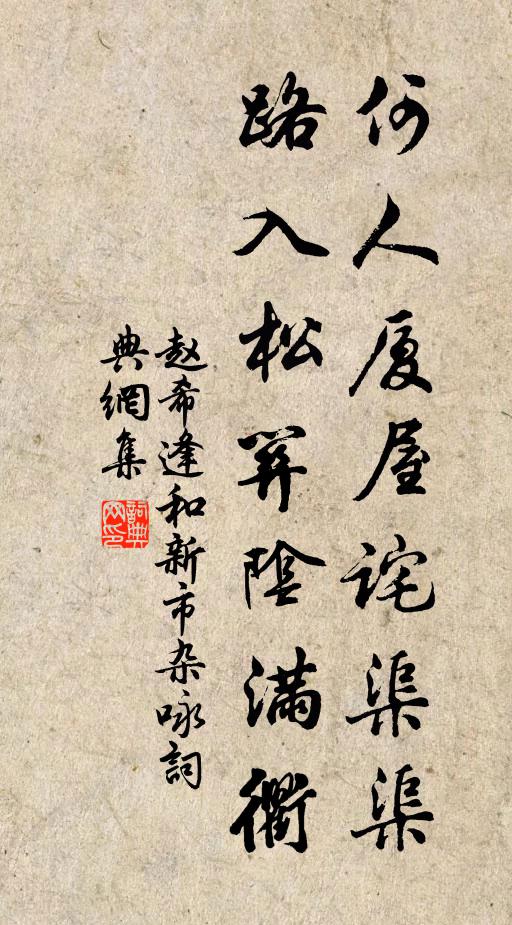 何人厦屋诧渠渠
路入松陰满衢
赵希逢和新市杂咏詞
典網集
詞典
网印